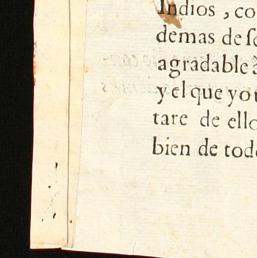 Indios, co
demas de se
agradable
y el que yo
tare de ello
bien de tod